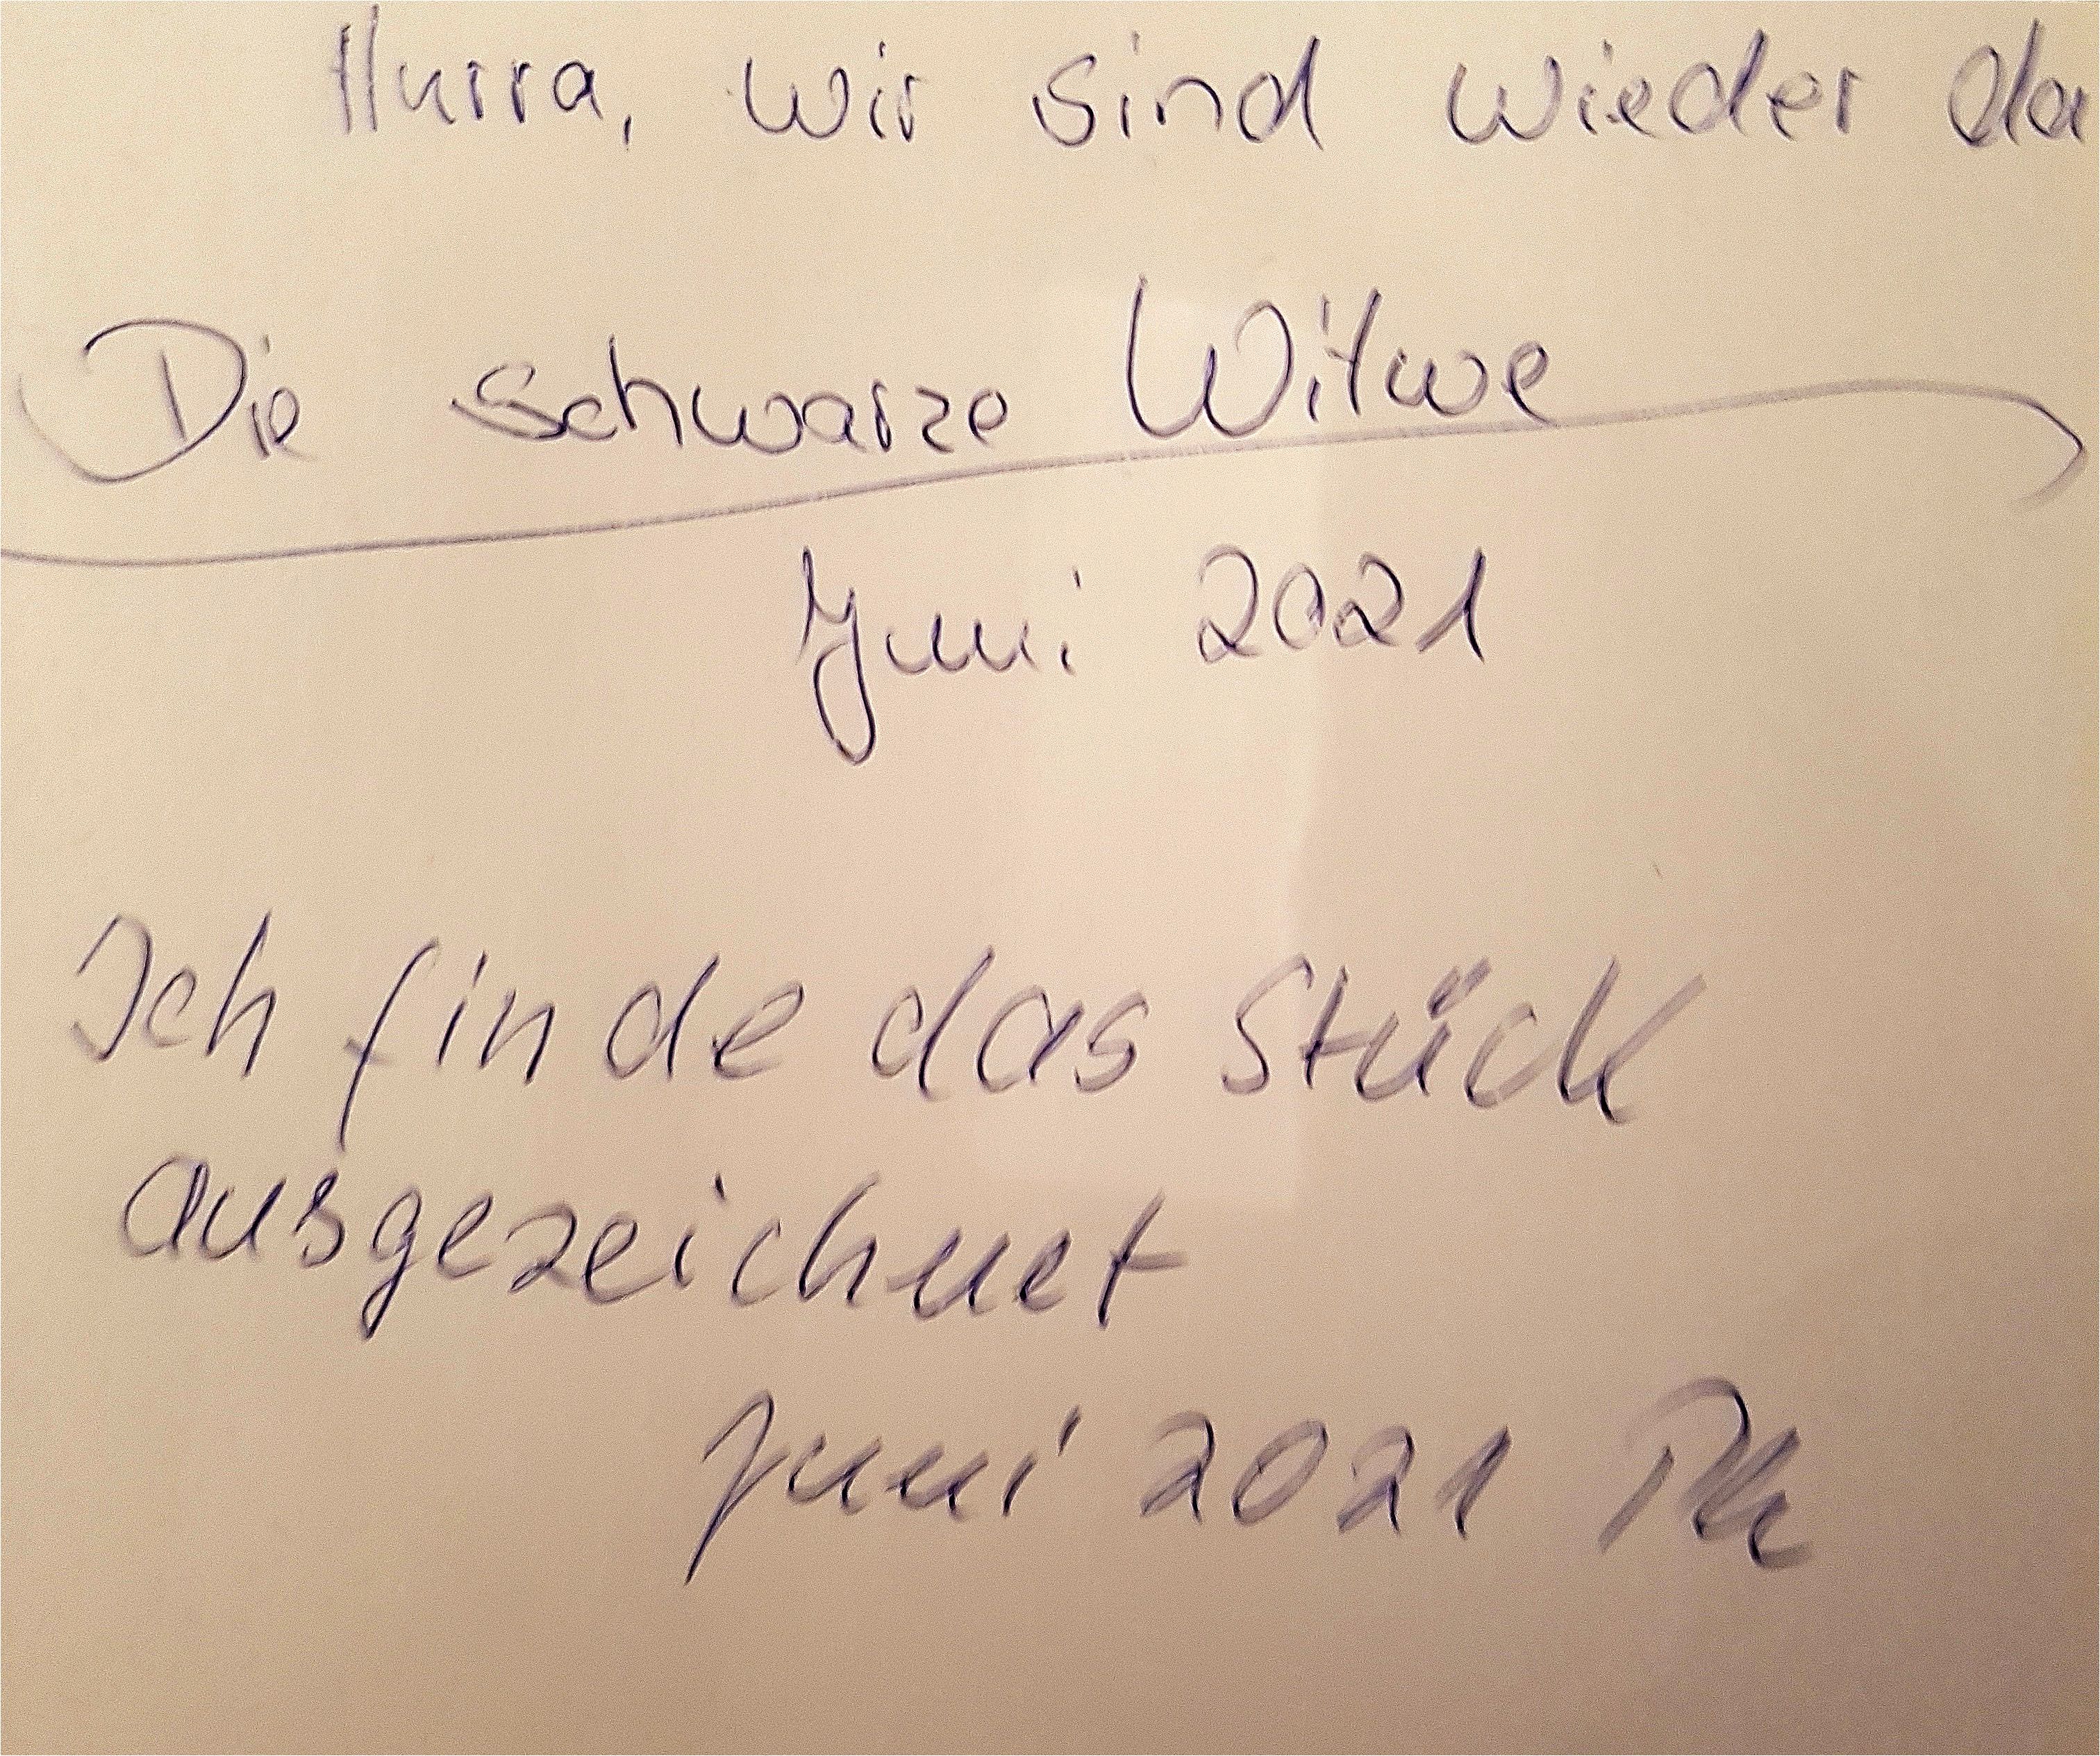 Hurra, wir sind wieder da
Die schwarze Witwe
Juni 2021
Ich finde das Stück
ausgezeichnet
Juni 2021